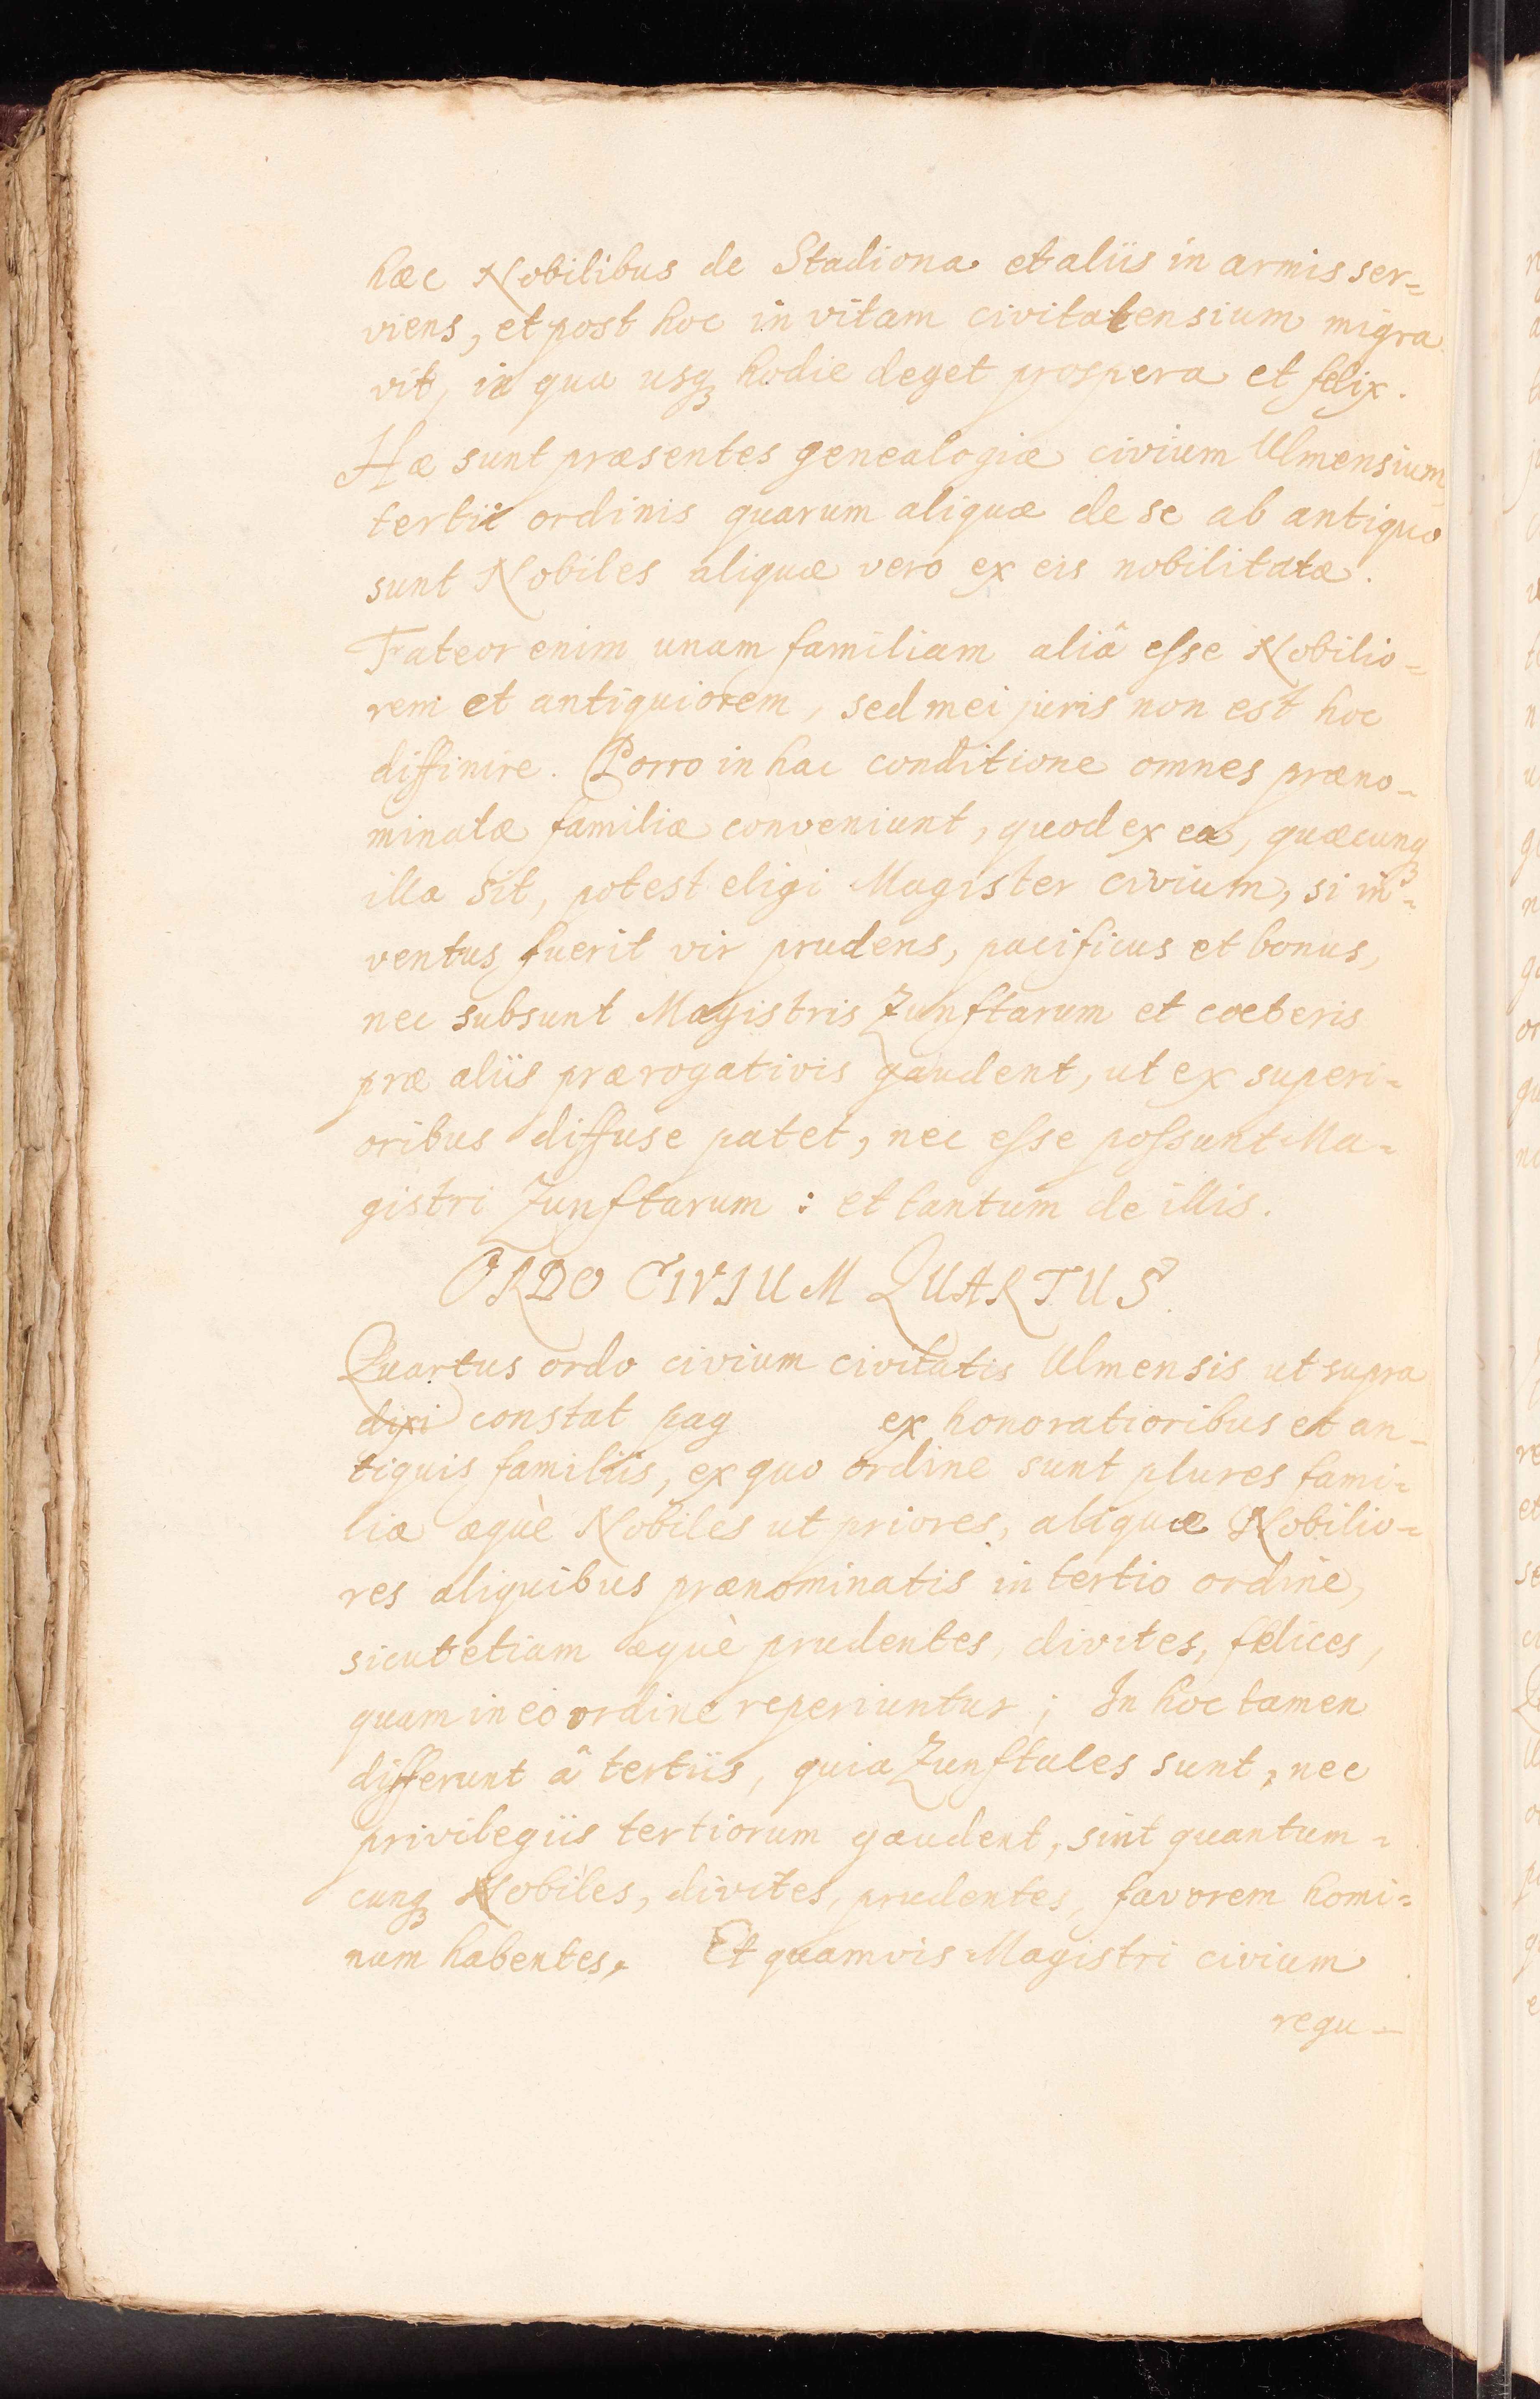 hæc Nobilibus de Stadiona et aliis in armis ser=
viens, et post hoc in vitam civitatensium migra
vit, in qua usqꝫ hodie deget prospera et felix.
Hæ sunt præsentes genealogiæ civium Ulmensium
tertii ordinis quarum aliquæ de se ab antiquo
sunt Nobiles aliquæ vero ex eis nobilitatæ.
Frateor enim unam familiam aliâ eſse Nobilio=
rem et antiquiorem, sed mei juris non est hoc
diffinire. Porro in hac conditione omnes præno=
minatæ familiæ conveniunt, quod ex ea, quæcunqꝫ
illa sit, potest eligi Magister civium, si in=
ventus fuerit vir prudens, pacificus et bonus,
nec subsunt Magistris Zunftarum et cœteris
præ aliis prærogativis gaudent, ut ex superi=
oribus diffuse patet, nec eſse poſsunt Ma=
gistri Zunftarum : et tantum de illis.
ORDO CIVIUM QUARTUS.
Quartus ordo civium civitatis Ulmensis ut supra
dixi constat pag ex honoratioribus et an=
tiquis familiis, ex quo ordine sunt plures fami=
liæ æquè Nobiles ut priores, aliquæ Nobilio=
res aliquibus prænominatis in tertio ordine,
sicut etiam æquè prudentes, divites, felices,
quam in eo ordine reperiuntur; In hoc tamen
differunt â tertiis, quia Zunftales sunt, nec
privilegiis tertiorum gaudent, sint quantum=
cunqꝫ Nobiles, divites, prudentes, favorem homi=
num habentes, Et quamvis Magistri civium
regu=